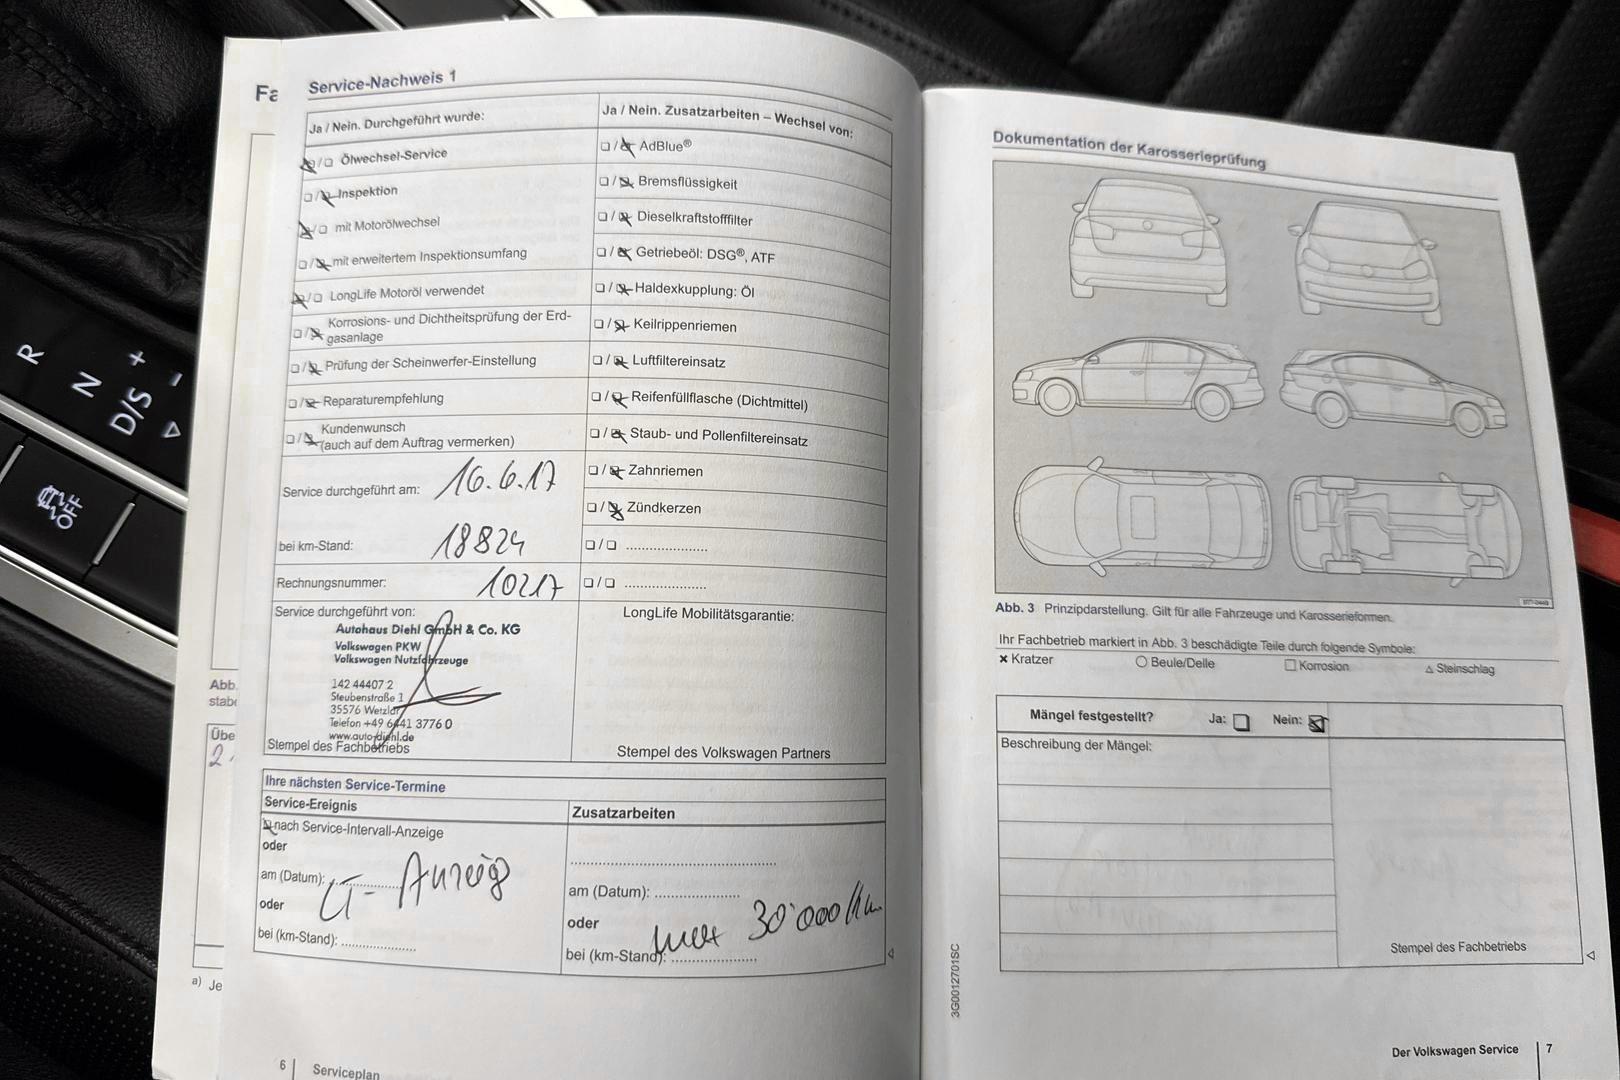 Fa
Service-Nachweis 1
Ja / Nein. Durchgeführt wurde:
Ölwechsel-Service
Inspektion
mit Motorölwechsel
mit erweitertem Inspektionsumfang
LongLife Motoröl verwendet
Korrosions- und Dichtheitsprüfung der Erd-
gasanlage
Prüfung der Scheinwerfer-Einstellung
Reparaturempfehlung
Kundenwunsch
(auch auf dem Auftrag vermerken)
Service durchgeführt am: 16.6.17
bei km-Stand: 18824
Rechnungsnummer: 10217
Service durchgeführt von:
Autohaus Diehl GmbH & Co. KG
Volkswagen PKW
Volkswagen Nutzfahrzeuge
142 44407 2
Steubenstraße 1
35576 Wetzlar
Telefon +49 6441 3776 0
www.auto-diehl.de
Stempel des Fachbetriebs
Ja / Nein. Zusatzarbeiten – Wechsel von:
AdBlue®
Bremsflüssigkeit
Dieselkraftstofffilter
Getriebeöl: DSG®, ATF
Haldexkupplung: Öl
Keilrippenriemen
Luftfiltereinsatz
Reifenfüllflasche (Dichtmittel)
Staub- und Pollenfiltereinsatz
Zahnriemen
Zündkerzen
LongLife Mobilitätsgarantie:
Stempel des Volkswagen Partners
Ihre nächsten Service-Termine
Service-Ereignis
nach Service-Intervall-Anzeige
oder
am (Datum):
oder
bei (km-Stand):
Zusatzarbeiten
am (Datum):
oder
bei (km-Stand): 30'000 km
6 Serviceplan
Abb.
stabe
Übe
2.
a) Je
R
N
D/S
+
−
OFF
Dokumentation der Karosserieprüfung
Abb. 3 Prinzipdarstellung. Gilt für alle Fahrzeuge und Karosserieformen.
Ihr Fachbetrieb markiert in Abb. 3 beschädigte Teile durch folgende Symbole:
Kratzer Beule/Delle Korrosion Steinschlag
Mängel festgestellt? Ja: Nein:
Beschreibung der Mängel:
Stempel des Fachbetriebs
3G0012701SC
Der Volkswagen Service 7